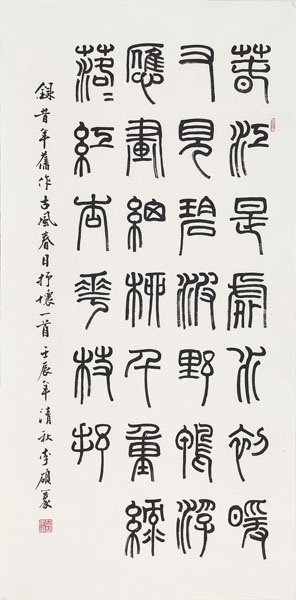 春江是處水初暖
又見碧波野鴨浮
應畫細柳千重綠
落〻紅杏花枝
錄昔年舊作古風春日抒懷一首壬辰年清秋李碩篆